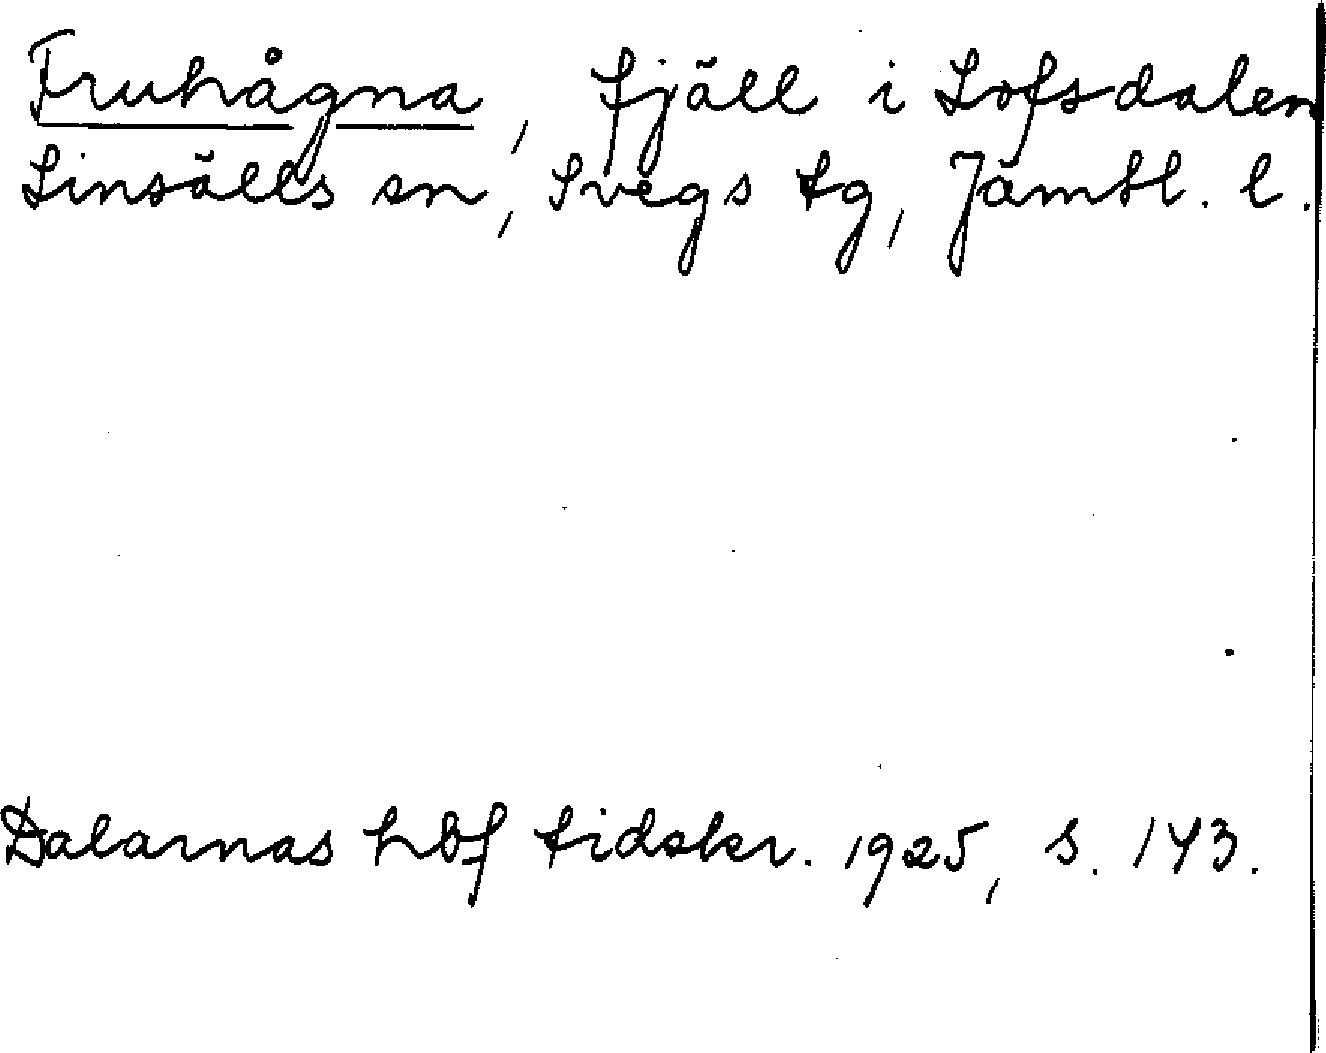 Fruhågna, fjäll i Lofsdalen
Linsälls sn, Svegs tg, Jämtl. l.
Dalarnas hbf tidskr. 1925, s. 143.